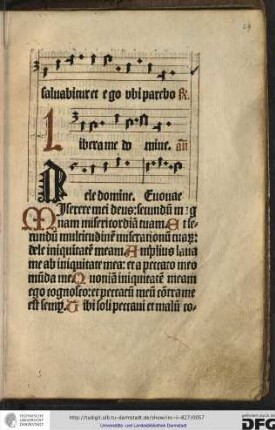 29
saluabitur et ego vbi parebo ℟.
Libera me do mine. an̄
Dele domine. Euouae
Miserere mei deus: secundū m:g
nam misericordiā tuam Et se-
cundū multitudinē miserationū tuaꝝ:
dele iniquitatē meam Amplius laua
me ab iniquitate mea: et a peccato meo
mūda me Quoniā iniquitatē meam
ego cognosco: et peccatū meū cōtra me
est semꝑ Tibi soli peccaui et malū co-
http://tudigit.ulb.tu-darmstadt.de/show/inc-ii-827/0057
Universitäts- und Landesbibliothek Darmstadt
gefördert durch die
DFG